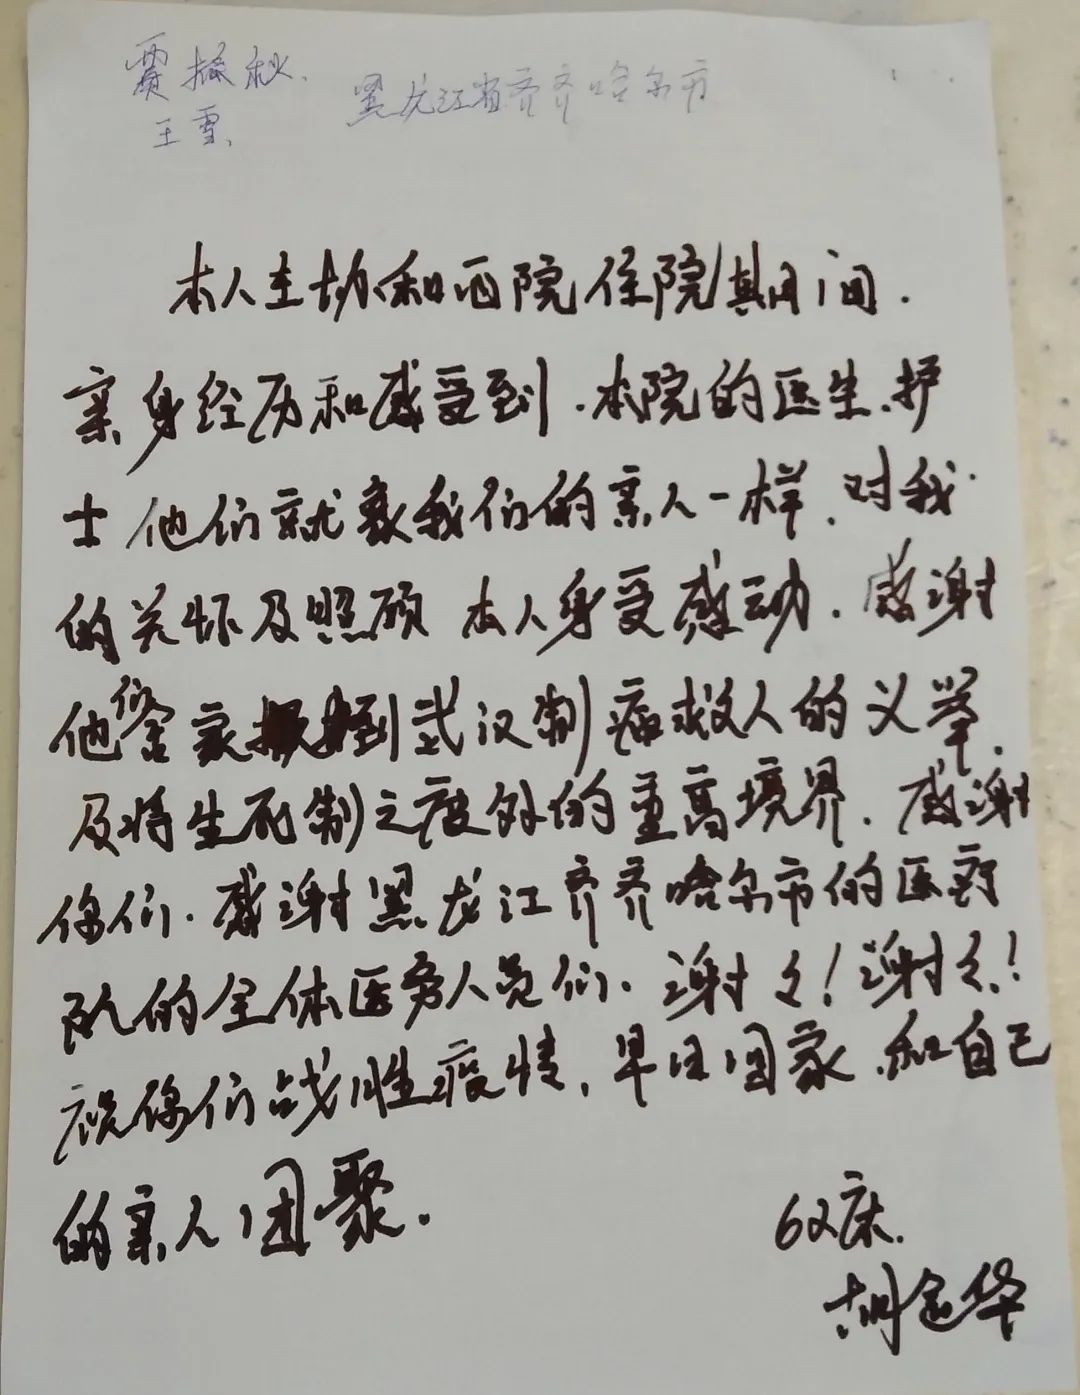 贾振秋.
王雪.
黑龙江省齐齐哈尔市
本人在协和西院住院期间.
亲身经历和感受到.本院的医生.护
士他们就象我们的亲人一样.对我
的关怀及照顾 本人身受感动.感谢
他们舍家到武汉制病救人的义举.
及将生死制之度外的重高境界.感谢
你们.感谢黑龙江齐齐哈尔市的医疗
队的全体医务人员们.谢々!谢々!
祝你们战胜疫情,早日回家.和自己
的亲人团聚.
602床.
胡金华